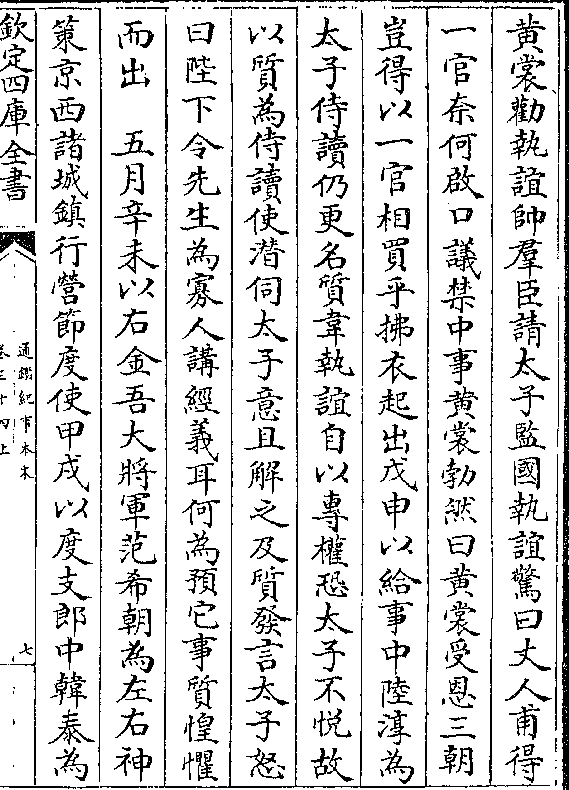 黄裳勸執誼帥羣臣請太子監國執誼驚曰丈人甫得
一官奈何啟口議禁中事黄裳勃然曰黄裳受恩三朝
豈得以一官相買乎拂衣起出戊申以給事中陸淳為
太子侍讀仍更名質韋執誼自以專權恐太子不悦故
以質為侍讀使潛伺太子意且解之及質發言太子怒
曰陛下令先生為寡人講經義耳何為預它事質惶懼
而出　五月辛未以右金吾大將軍范希朝為左右神
策京西諸城鎮行營節度使甲戌以度支郎中韓泰為
欽定四庫全書
通鑑紀事本末
卷三十四上
七